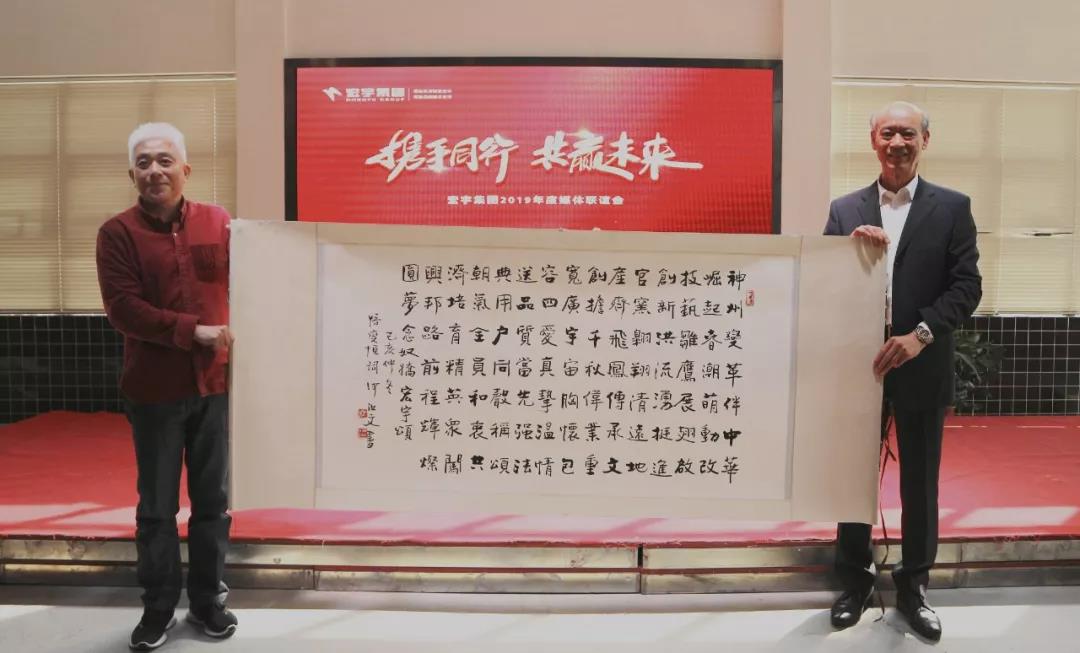 宏宇集團
HONGYU GROUP
携手同行 共赢未来
宏宇集团2019年度媒体联谊会
神州變革伴中華
崛起春潮萌動改
技藝雛鷹展翅啟
創新洪流湧挺進
官窯翺翔清遠地
產齊飛鳳傳承文
創擔千秋偉業重
寬廣宇宙胸懷包
容四愛真摯温情
送品質當先强法
典用户同聲稱頌
朝氣全員和衷共
濟培育精英衆闖
興邦路前程輝燦
圓夢念奴嬌宏宇頌
己亥仲冬
詞 文書